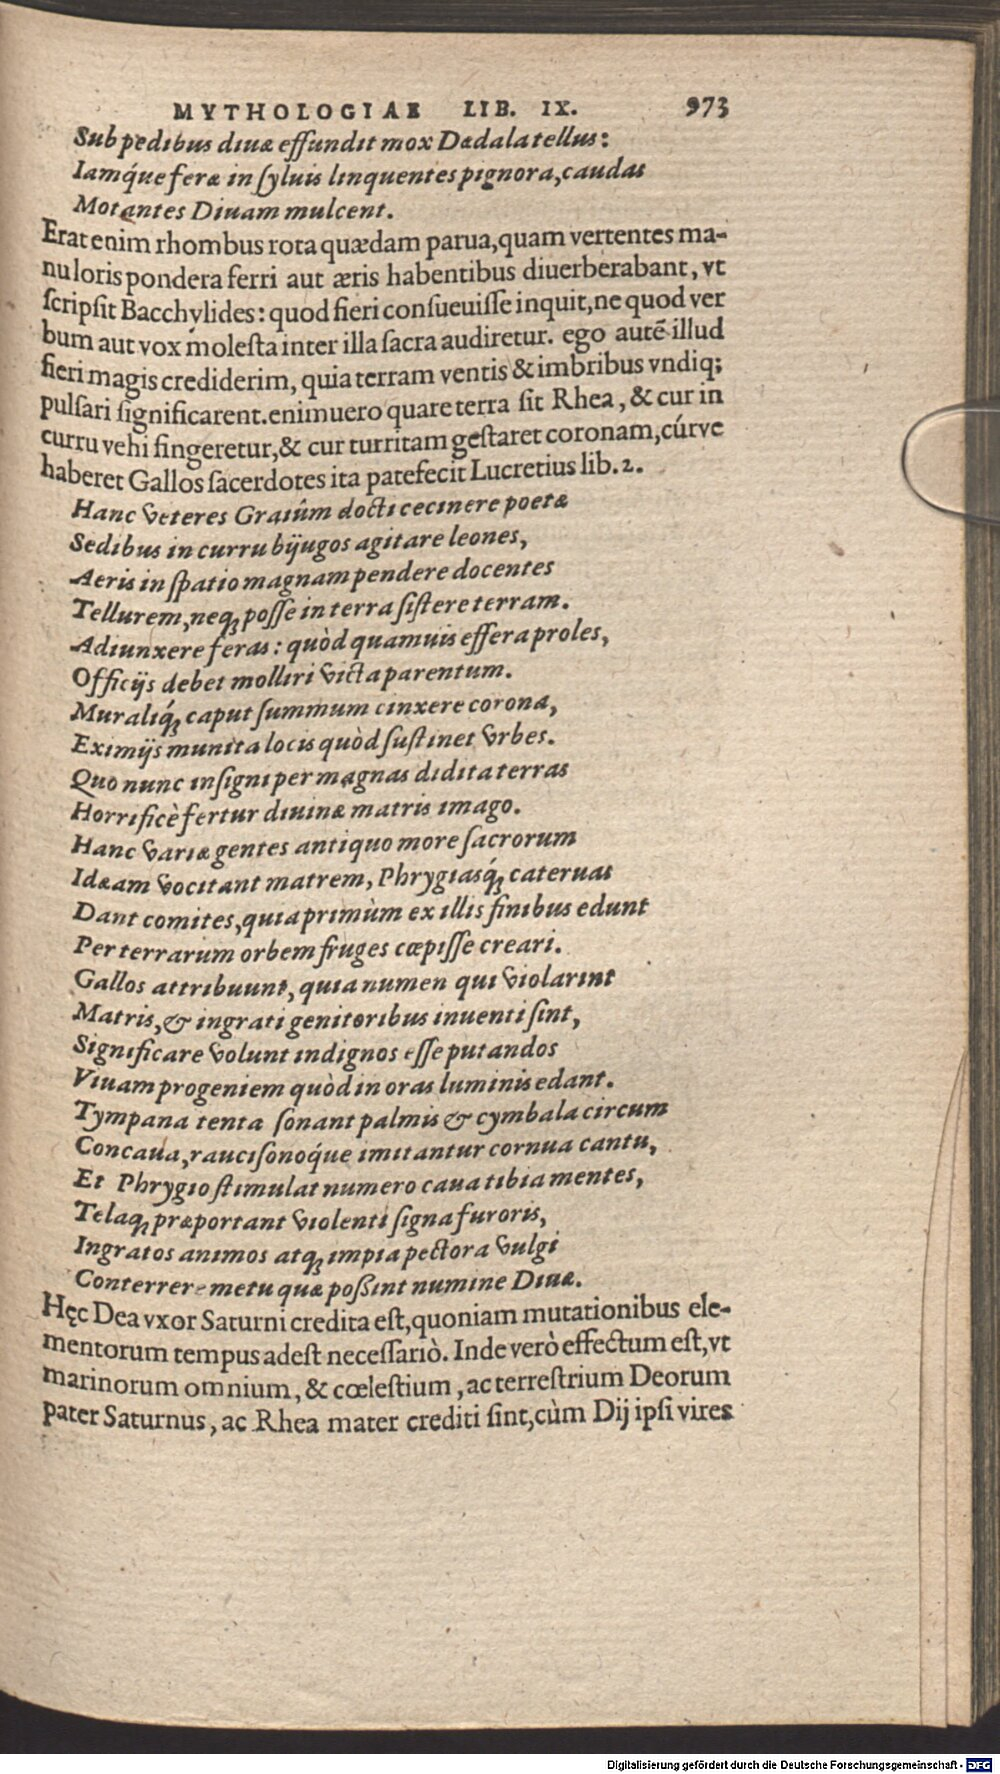 MYTHOLOGIAE LIB. IX. 973
Sub pedibus diuæ effundit mox Dædala tellus:
Iamq́ue feræ in ſyluis linquentes pignora, caudas
Motantes Diuam mulcent.
Erat enim rhombus rota quædam parua, quam vertentes ma-
nu loris pondera ferri aut æris habentibus diuerberabant, vt
ſcripſit Bacchylides: quod fieri conſueuiſſe inquit, ne quod ver
bum aut vox moleſta inter illa ſacra audiretur. ego autē illud
fieri magis crediderim, quia terram ventis & imbribus vndiq;
pulſari ſignificarent. enimuero quare terra ſit Rhea, & cur in
curru vehi fingeretur, & cur turritam geſtaret coronam, cúrve
haberet Gallos ſacerdotes ita patefecit Lucretius lib. 2.
Hanc veteres Graiûm docti cecinere poetæ
Sedibus in curru bijugos agitare leones,
Aeris in ſpatio magnam pendere docentes
Tellurem, neq; poſſe in terra ſiſtere terram.
Adiunxere feras: quòd quamuis effera proles,
Officijs debet molliri victa parentum.
Muraliq́; caput ſummum cinxere corona,
Eximijs munita locis quòd ſuſtinet vrbes.
Quo nunc inſigni per magnas didita terras
Horrificè fertur diuinæ matris imago.
Hanc variæ gentes antiquo more ſacrorum
Idæam vocitant matrem, Phrygiasq́; cateruas
Dant comites, quia primùm ex illis finibus edunt
Per terrarum orbem fruges cœpiſſe creari.
Gallos attribuunt, quia numen qui violarint
Matris, & ingrati genitoribus inuenti ſint,
Significare volunt indignos eſſe putandos
Viuam progeniem quòd in oras luminis edant.
Tympana tenta ſonant palmis & cymbala circum
Concaua, rauciſonoq́ue imitantur cornua cantu,
Et Phrygio ſtimulat numero caua tibia mentes,
Telaq; præportant violenti ſigna furoris,
Ingratos animos atq; impia pectora vulgi
Conterrere metu quæ poßint numine Diuæ.
Hęc Dea vxor Saturni credita eſt, quoniam mutationibus ele-
mentorum tempus adeſt neceſſariò. Inde verò effectum eſt, vt
marinorum omnium, & cœleſtium, ac terreſtrium Deorum
pater Saturnus, ac Rhea mater crediti ſint, cùm Dij ipſi vires
Digitalisierung gefördert durch die Deutsche Forschungsgemeinschaft - DFG